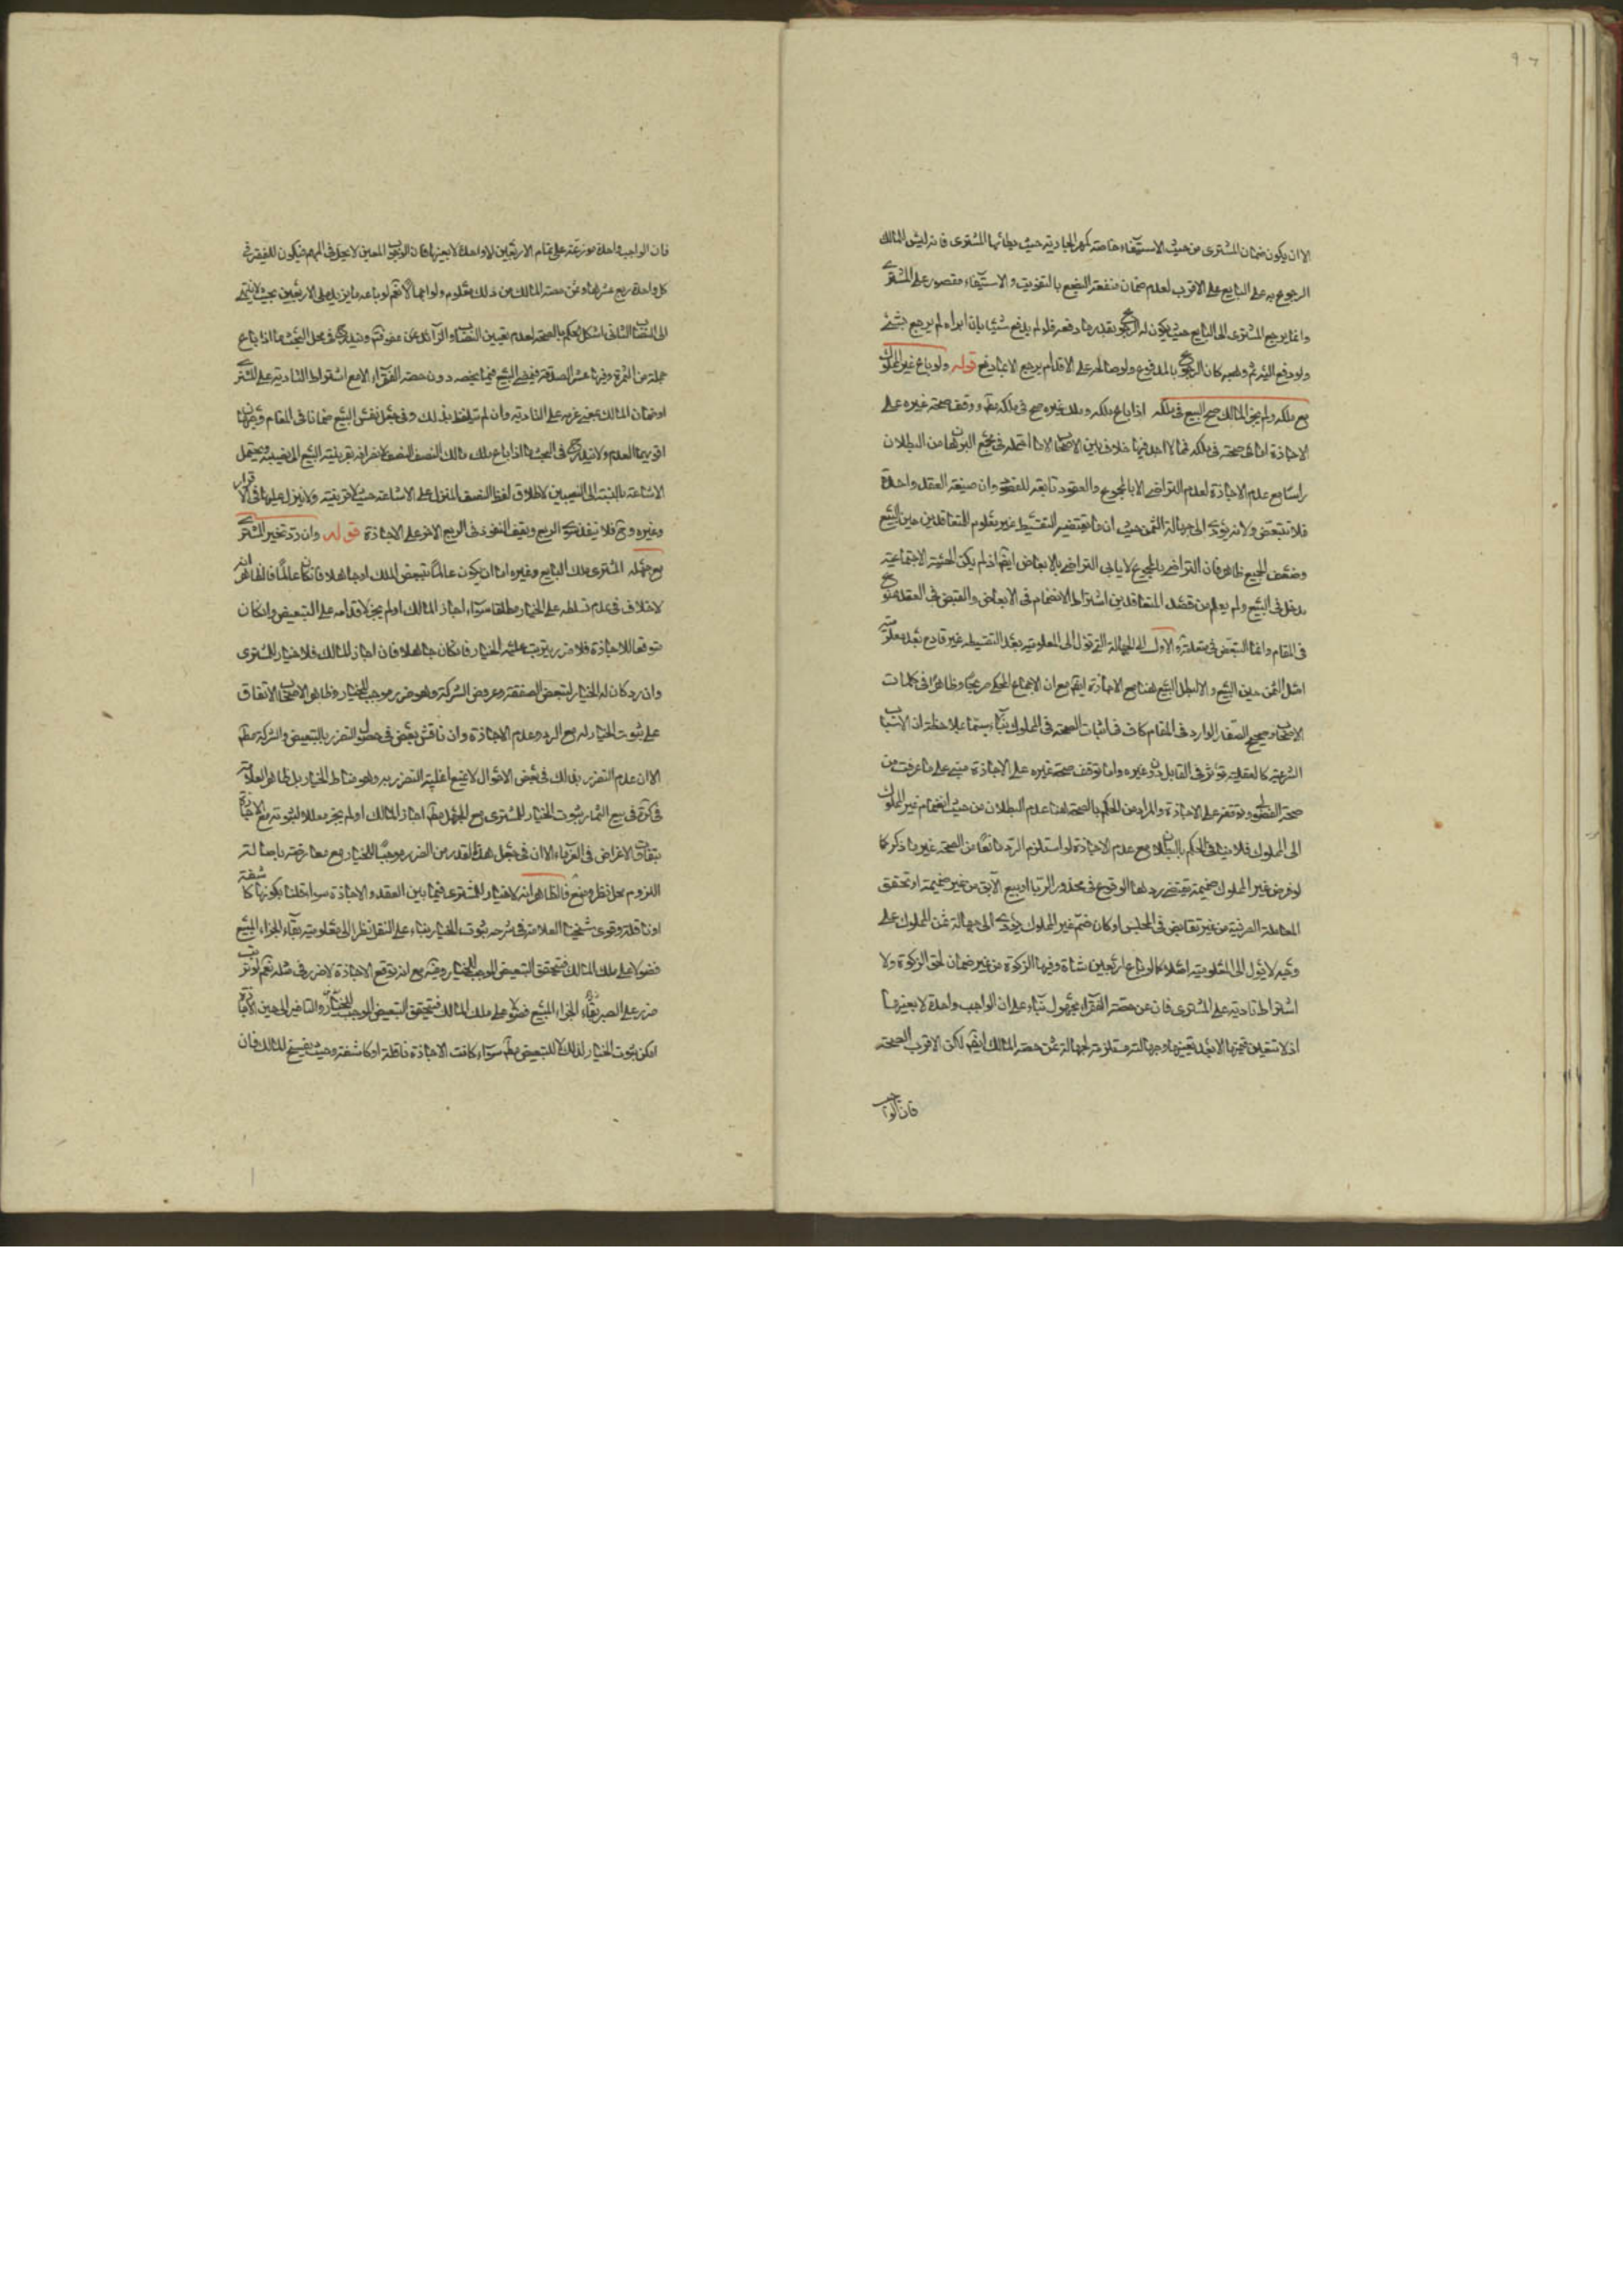 الا ان يكون ضمان المشترى من حيث الاستيفاء خاصة كمهر الجارية حيث وطائها المشترى فانه ليس للمالك
الرجوع به على البايع على الاقرب لعدم ضمان منفعة البضع بالتفويت والاستيفاء مقصور على المشترى
وانما يرجع المشترى الى البايع حيث يكون له الرجوع بقدر ما دفعه فلو لم يدفع شيئا بان ابراه لم يرجع بشئ
ولو دفع اليه ثم وهبه كان الرجوع بالمدفوع ولو صالحه على الاقل لم يرجع الا بما دفع قوله ولو باع غير المملوك
مع ملكه ولم يجز المالك صح البيع فى ملكه اذا باع ملكه وملك غيره صح فى ملكه مطـ ووقف صحة غيره على
الاجازة اما صحته فى ملكه فمما لا اجد فيها خلاف بين الاصحاب الا ما احتمله فى مجمع البرهان من البطلان
راسا مع عدم الاجازة لعدم التراضى الا بالمجموع والعقود تابعه للقصود وان صيغة العقد واحدة
فلا تتبعض ولانه يؤدى الى جهالة الثمن حيث ان ما يقتضيه التقسيط غير معلوم للمتعاقدين حين البيع
وضعف الجميع ظاهر فان التراضى بالمجموع لا ينافى التراضى بالابعاض ايضا اذ لم يكن الهيئة الاجتماعية
مدخل فى البيع ولم يعلم من قصد المتعاقدين اشتراط الانضمام فى الابعاض والتبعض فى العقد ممنوع
فى المقام وانما التبعض فى متعلقه والاول الى الجهالة التى تؤل الى المعلومية بعد التقسيط غير قادح بعد معلومية
اصل الثمن حين البيع والا لبطل البيع هنا مع الاجازة ايضا مع ان الاجماع المحكى صريحا وظاهرا فى كلمات
الاصحاب وصحيح الصفار الوارد فى المقام كاف فى اثبات الصحة فى المملوك سيما بملاحظة ان الاسباب
الشرعية كالعقلية تؤثر فى القابل دون غيره واما توقف صحة غيره على الاجازة مبنى على ما عرفت من
صحة الفضولى وتوقفه على الاجازة والمراد من الحكم بالصحة هنا عدم البطلان من حيث انضمام غير المملوك
الى المملوك فلا ينافى الحكم بالبطلان مع عدم الاجازة لو استلزم الرد مانعا من الصحة غير ما ذكر كما
لو فرض غير المملوك ضميمة يقتضى ردها الوقوع فى محذور الربا او بيع الآبق من غير ضميمة او تحقق
المعاملة الصرفية من غير تقابض فى المجلس او كان ضم غير المملوك يؤدى الى جهالة ثمن المملوك على
وجه لا يؤل الى المعلومية اصلا كما لو باع اربعين شاة وفيها الزكوة من غير ضمان لحق الزكوة ولا
اشتراط تاديته على المشترى فان ثمن حصة الفقراء مجهول بناء على ان الواجب واحدة لا بعينها
اذ لا تتعين قيمتها الا بعد تعيينها وجهالته مستلزمة لجهالة ثمن حصة المالك ايضا لكن الاقرب الصحة
فان الواجب
فان الواجب واحدة موزعة على تمام الاربعين لا واحدة لا بعينها فان الوجوب المعين لا يحل فى المبهم فيكون للفقير فى
كل واحدة ربع عشرها وثمن حصة المالك من ذلك معلوم ولو اجمالا نعم لو باعه ما يزيد على الاربعين بحيث لا ينتهى
الى النصاب الثانى اشكل الحكم بالصحة لعدم تعيين النصاب والزائد عن معرفته ويندرج فى محل البحث ما اذا باع
جملة من الثمرة وفيها عشر الصدقة فيصح البيع فيما يخصه دون حصة الفقراء الا مع اشتراط التادية على المشترى
او ضمان المالك بمعنى عزمه على التادية وان لم يتلفظ بذلك وفى جعل نفس البيع ضمانا فى المقام وجهان
اقويهما العدم ولا يندرج فى البحث ما اذا باع ملك مالك النصف النصف لانصرافه بقرينة البيع الى نصيبه ويحتمل
الاشاعة بالنسبة الى النصيبين لاطلاق لفظ النصف المنزل على الاشاعة حيث لا قرينة ولا ينزل عليها فى الاقرار
وغيره وح فلا ينفذ سوى الربع ويقف النفوذ فى الربع الاخر على الاجازة قوله وان رد تخير المشترى
مع جهله المشترى ملك البايع وغيره اما ان يكون عالما بتبعض الملك او جاهلا فان كان عالما فالظاهر انه
لا خلاف فى عدم تسلطه على الخيار مطلقا سواء اجاز المالك او لم يجز لاقدامه على التبعيض وان كان
متوقعا للاجازة فلا ضرر يترتب عليه الخيار فان كان جاهلا فان اجاز المالك فلا خيار للمشترى
وان رد كان له الخيار لتبعض الصفقة وعروض الشركة وهو ضرر موجب للخيار وظاهر الاصحاب الاتفاق
على ثبوت الخيار له مع الرد وعدم الاجازة وان ناقش بعض فى حصول الضرر بالتبعيض والشركة مطـ
الا ان عدم التضرر بذلك فى بعض الاحوال لا يمنع اغلبية التضرر به وهو مناط الخيار بل ظاهر العلامة
فى كره فى بيع الثمار ثبوت الخيار للمشترى مع الجهل مطـ اجاز المالك او لم يجز معللا لثبوته مع الاجازة
بتفاوت الاغراض فى الغرماء الا ان فى جعل هذا القدر من الضرر موجبا للخيار مع معارضته باصالة
اللزوم محل نظر ومنع فالظاهر انه لا خيار للمشترى فيما بين العقد والاجازة سواء قلنا بكونها كاشفة
او ناقلة وقوى شيخنا العلامة فى شرحه ثبوت الخيار بناء على النقل نظرا الى معلومية بقاء الجزء المبيع
فضولا على ملك المالك فتحقق التبعيض الموجب للخيار وفيه مع انه توقع الاجازة لا ضرر فى مثله نعم لو ترتب
ضرر على الصبر بقاء الجزء المبيع فضولا على ملك المالك فتحقق التبعيض الموجب للخيار والتاخير الى حين الاجازة
امكن ثبوت الخيار لذلك لا للتبعيض مطـ سواء كانت الاجازة ناقلة او كاشفة وحيث يفسخ المالك فان